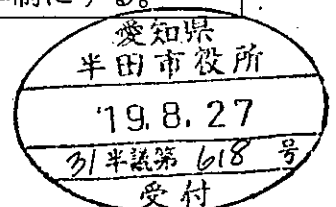 にする。
愛知県
半田市役所
'19.8.27
31半議第 618 号
受付